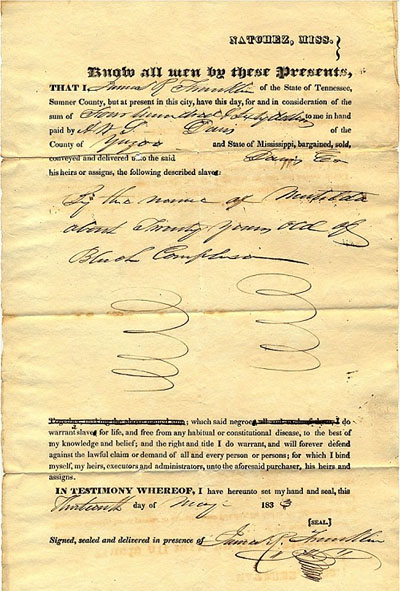 NATCHEZ, MISS. }
Know all men by these Presents,
THAT I, James R Franklin of the State of Tennessee,
Sumner County, but at present in this city, have this day, for and in consideration of the
sum of Four hundred & Dollars to me in hand
paid by A Davis of the
County of Yazoo and State of Mississippi, bargained, sold,
conveyed and delivered unto the said Davis
his heirs or assigns, the following described slave:
By the name of Matilda
about Twenty years old of
Black Complexion
Together, ; which said negroe I do
warrant slave for life, and free from any habitual or constitutional disease, to the best of
my knowledge and belief; and the right and title I do warrant, and will forever defend
against the lawful claim or demand of all and every person or persons; for which I bind
myself, my heirs, executors and administrators, unto the aforesaid purchaser, his heirs and
assigns.
IN TESTIMONY WHEREOF, I have hereunto set my hand and seal, this
Thirteenth day of May 1833
[SEAL.]
Signed, sealed and delivered in presence of James R. Franklin